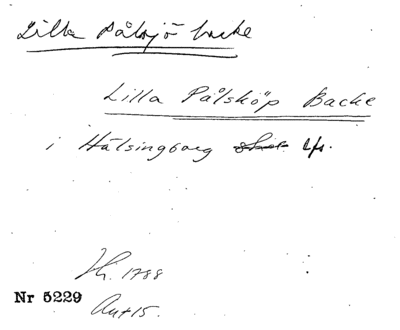 Lilla Pålsjö backe
Lilla Pålsköp Backe
i Hälsingborg lfs.
Hr. 1788
Nr 5229
Ant 15.